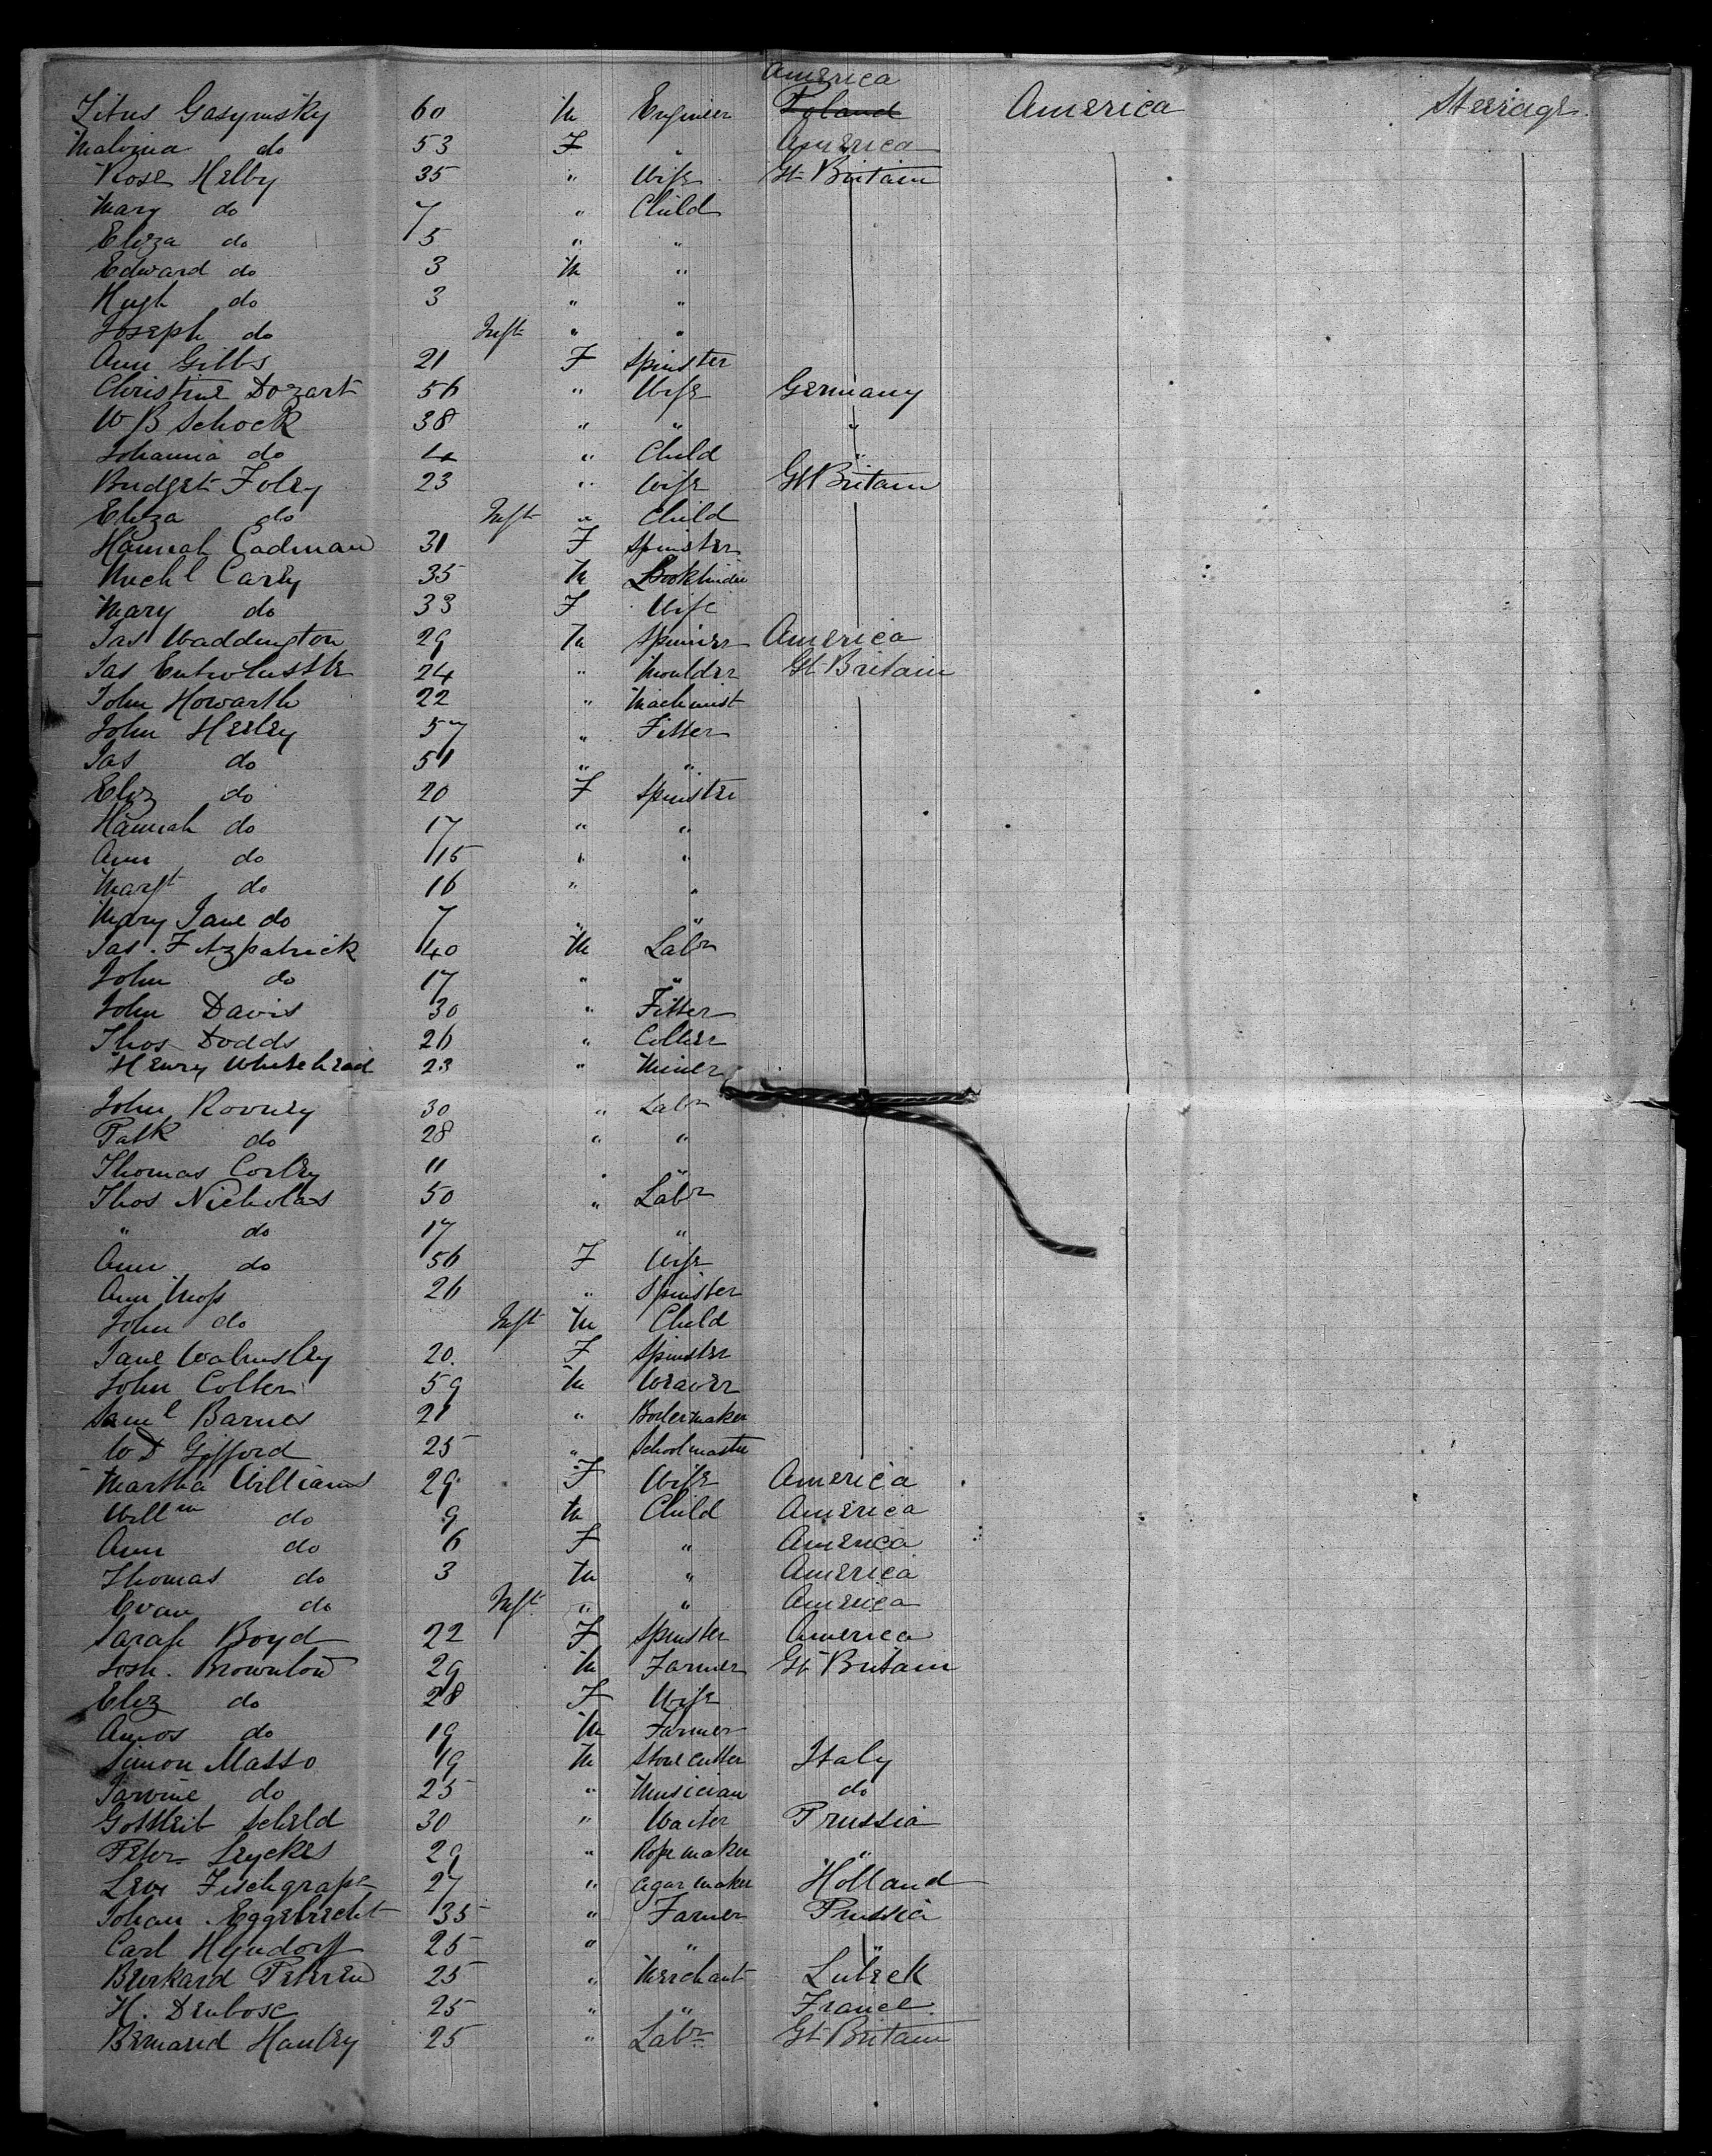 America
Titus Gasymsky 60 M Engineer Poland America Steerage
Malvina do 53 F " America
Rose Helby 35 " Wife Gt Britain
Mary do 7 " Child
Eliza do 5 " "
Edward do 3 M "
Hugh do 3 " "
Joseph do Inft " "
Ann Gibbs 21 F Spinster
Christine Dozart 56 " Wife Germany
W B Schock 38 " " "
Johanna do 4 " Child "
Bridget Foley 23 " Wife Gt Britain
Eliza do Inft " Child
Hannah Cadman 31 F Spinster
Michl Carey 35 M Bookbinder
Mary do 33 F Wife
Jas Waddington 29 M Spinner America
Jas Entwhistle 24 " Moulder Gt Britain
John Howarth 22 " Machinist
John Herley 57 " Fitter
Jas do 51 " "
Eliz do 20 F Spinster
Hannah do 17 " "
Ann do 15 " "
Margt do 16 " "
Mary Jane do 7 " "
Jas. Fitzpatrick 40 M Labr
John do 17 " "
John Davis 30 " Fitter
Thos Dodds 26 " Collier
Henry Whitehead 23 " Miner
John Rooney 30 " Labr
Patk do 28 " "
Thomas Corley 11 " "
Thos Nicholas 50 " Labr
" do 17 "
Ann do 56 F Wife
Ann Moss 26 " Spinster
John do Inft M Child
Jane Walmsley 20 F Spinster
John Colten 59 M Weaver
Saml Barnes 21 " Boilermaker
W D Gifford 25 " Schoolmaster
Martha Williams 29 F Wife America
Willm do 9 M Child America
Ann do 6 F " America
Thomas do 3 M " America
Evan do Inft " " America
Sarah Boyd 22 F Spinster America
Josh. Brownlow 29 M Farmer Gt Britain
Eliz do 28 F Wife
Amos do 19 M Farmer
Simon Masso 49 M Stone cutter Italy
do 25 " Musician do
Gottleib Scheld 30 " Waiter Prussia
Peter Leyckes 29 " Rope maker "
Levi Fischgrape 27 " Cigar maker Holland
Johan. Eggebrecht 35 " Farmer Prussia
Carl Heyndorf 25 " " "
Burkard Petersen 25 " Merchant Lubeck
H. Denbosc 25 " " France
Bernard Hanley 25 " Labr Gt Britain